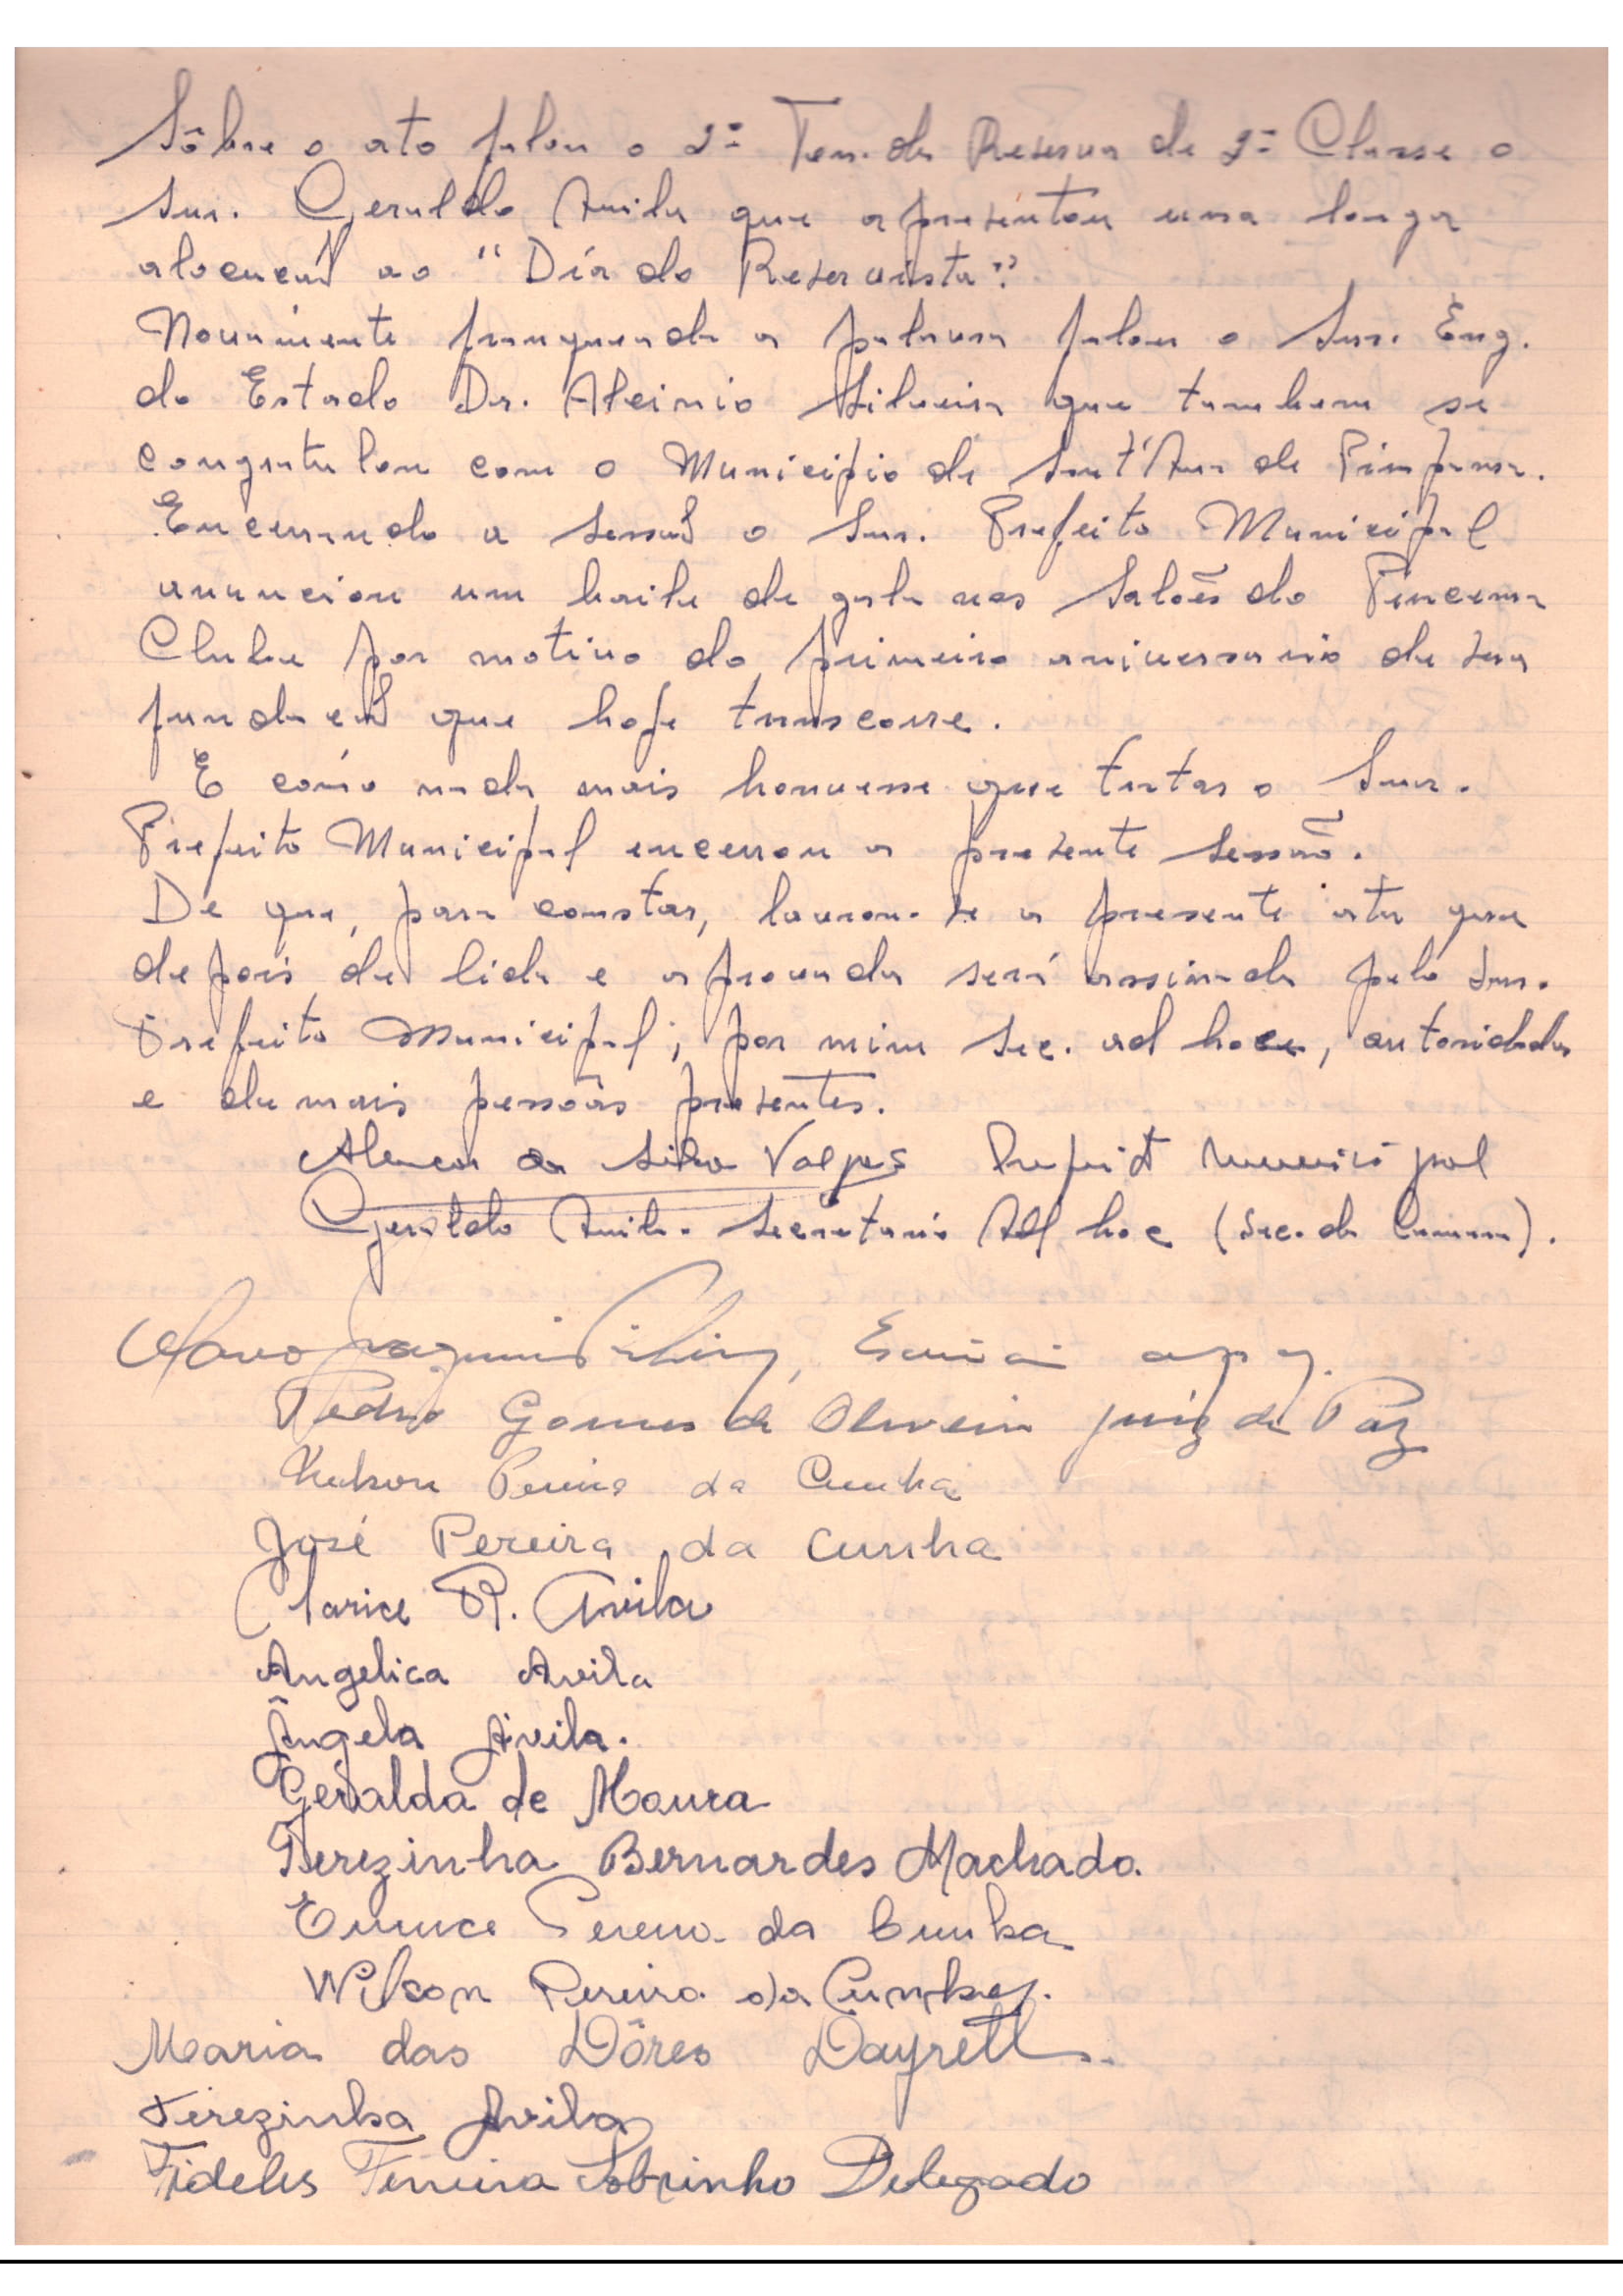 Sôbre o ato falou o 2º Ten. da Reserva de 2ª Classe o
Snr. Geraldo Avila que apresentou uma longa
alocução ao "Dia do Reservista".
Novamente franqueada a palavra falou o Snr. Eng.
do Estado Dr. Alcinio Silveira que tambem se
congratulou com o Municipio de Sant'Ana de Pirapama.
Encerrando a sessão o Snr. Prefeito Municipal
anunciou um baile de gala nos Salões do
Clube por motivo do primeiro aniversario de sua
fundação que hoje transcorre.
E como nada mais houvesse que tratar o Snr.
Prefeito Municipal encerrou a presente sessão.
De que, para constar, lavrou-se a presente ata que
depois de lida e aprovada será assinada pelo Snr.
Prefeito Municipal; por mim Sec. ad hoc, autoridades
e demais pessôas presentes.
da Silva Prefeito Municipal
Geraldo Avila. Secretario Ad hoc (Sec. da Camara).
Olavo
Pedro Gomes de Oliveira juiz de Paz
Nelson Pereira da Cunha
José Pereira da Cunha
Clarice R. Avila
Angelica Avila
Ângela Avila.
Geralda de Moura
Terezinha Bernardes Machado.
Eunice Pereira da Cunha
Wilson Pereira da Cunha.
Maria das Dôres Dayrell.
Terezinha Avila
Fidelis Ferreira Sobrinho Delegado